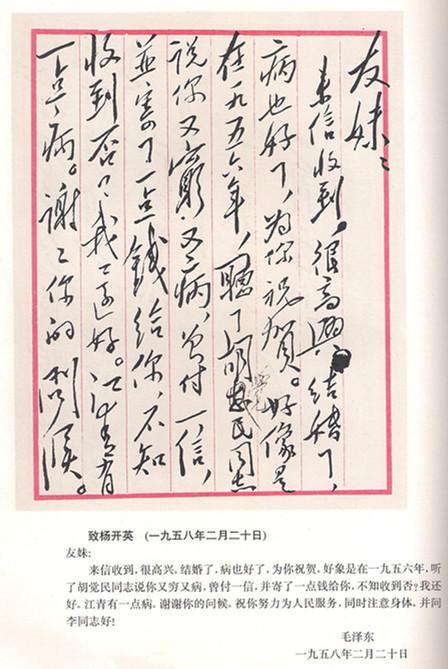 友妹：
来信收到，很高興，结婚了，
病也好了，为你祝贺。好像是
在一九五六年，聽了胡觉民同志
说你又窮又病，曾付一信，
並寄了一点錢给你，不知
收到否？我还好。江青有
一点病。谢〻你的问候。
致杨开英 (一九五八年二月二十日)
友妹:
来信收到，很高兴，结婚了，病也好了，为你祝贺。好象是在一九五六年，听
了胡觉民同志说你又穷又病，曾付一信，并寄了一点钱给你，不知收到否?我还
好。江青有一点病。谢谢你的问候，祝你努力为人民服务，同时注意身体。并问
李同志好!
毛泽东
一九五八年二月二十日